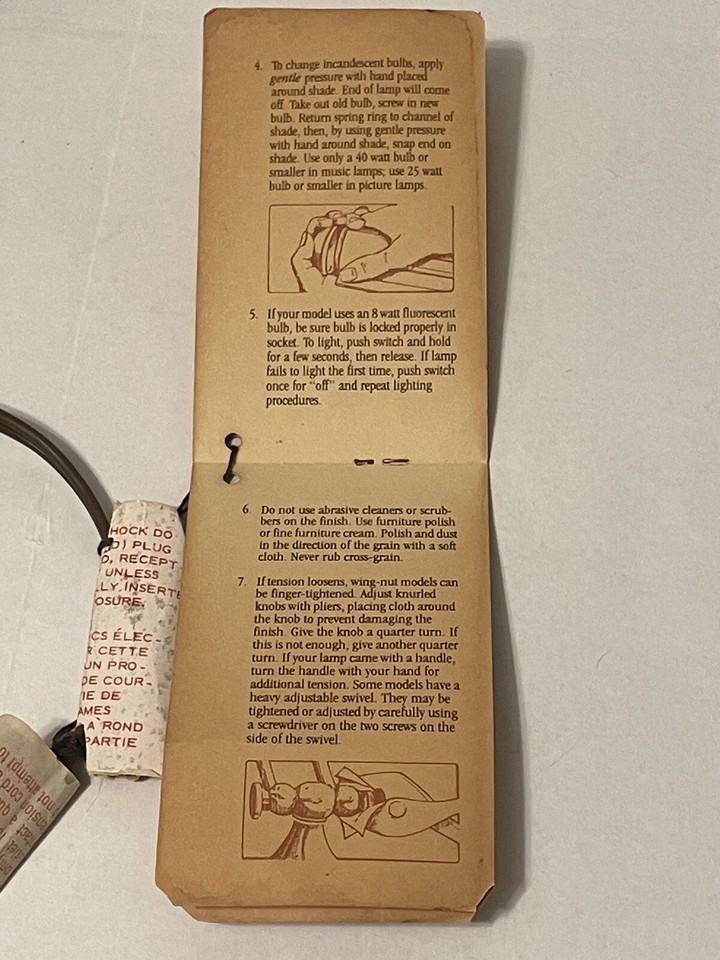 4. To change incandescent bulbs, apply
gentle pressure with hand placed
around shade. End of lamp will come
off. Take out old bulb, screw in new
bulb. Return spring ring to channel of
shade, then, by using gentle pressure
with hand around shade, snap end on
shade. Use only a 40 watt bulb or
smaller in music lamps; use 25 watt
bulb or smaller in picture lamps.
5. If your model uses an 8 watt fluorescent
bulb, be sure bulb is locked properly in
socket. To light, push switch and hold
for a few seconds, then release. If lamp
fails to light the first time, push switch
once for "off" and repeat lighting
procedures.
6. Do not use abrasive cleaners or scrub-
bers on the finish. Use furniture polish
or fine furniture cream. Polish and dust
in the direction of the grain with a soft
cloth. Never rub cross-grain.
7. If tension loosens, wing-nut models can
be finger-tightened. Adjust knurled
knobs with pliers, placing cloth around
the knob to prevent damaging the
finish. Give the knob a quarter turn. If
this is not enough, give another quarter
turn. If your lamp came with a handle,
turn the handle with your hand for
additional tension. Some models have a
heavy adjustable swivel. They may be
tightened or adjusted by carefully using
a screwdriver on the two screws on the
side of the swivel.
HOCK DO
D) PLUG
D, RECEPT
UNLESS
LLY INSERTE
OSURE.
CS ÉLEC-
R CETTE
UN PRO-
DE COUR-
IE DE
AMES
A ROND
PARTIE
not attempt to